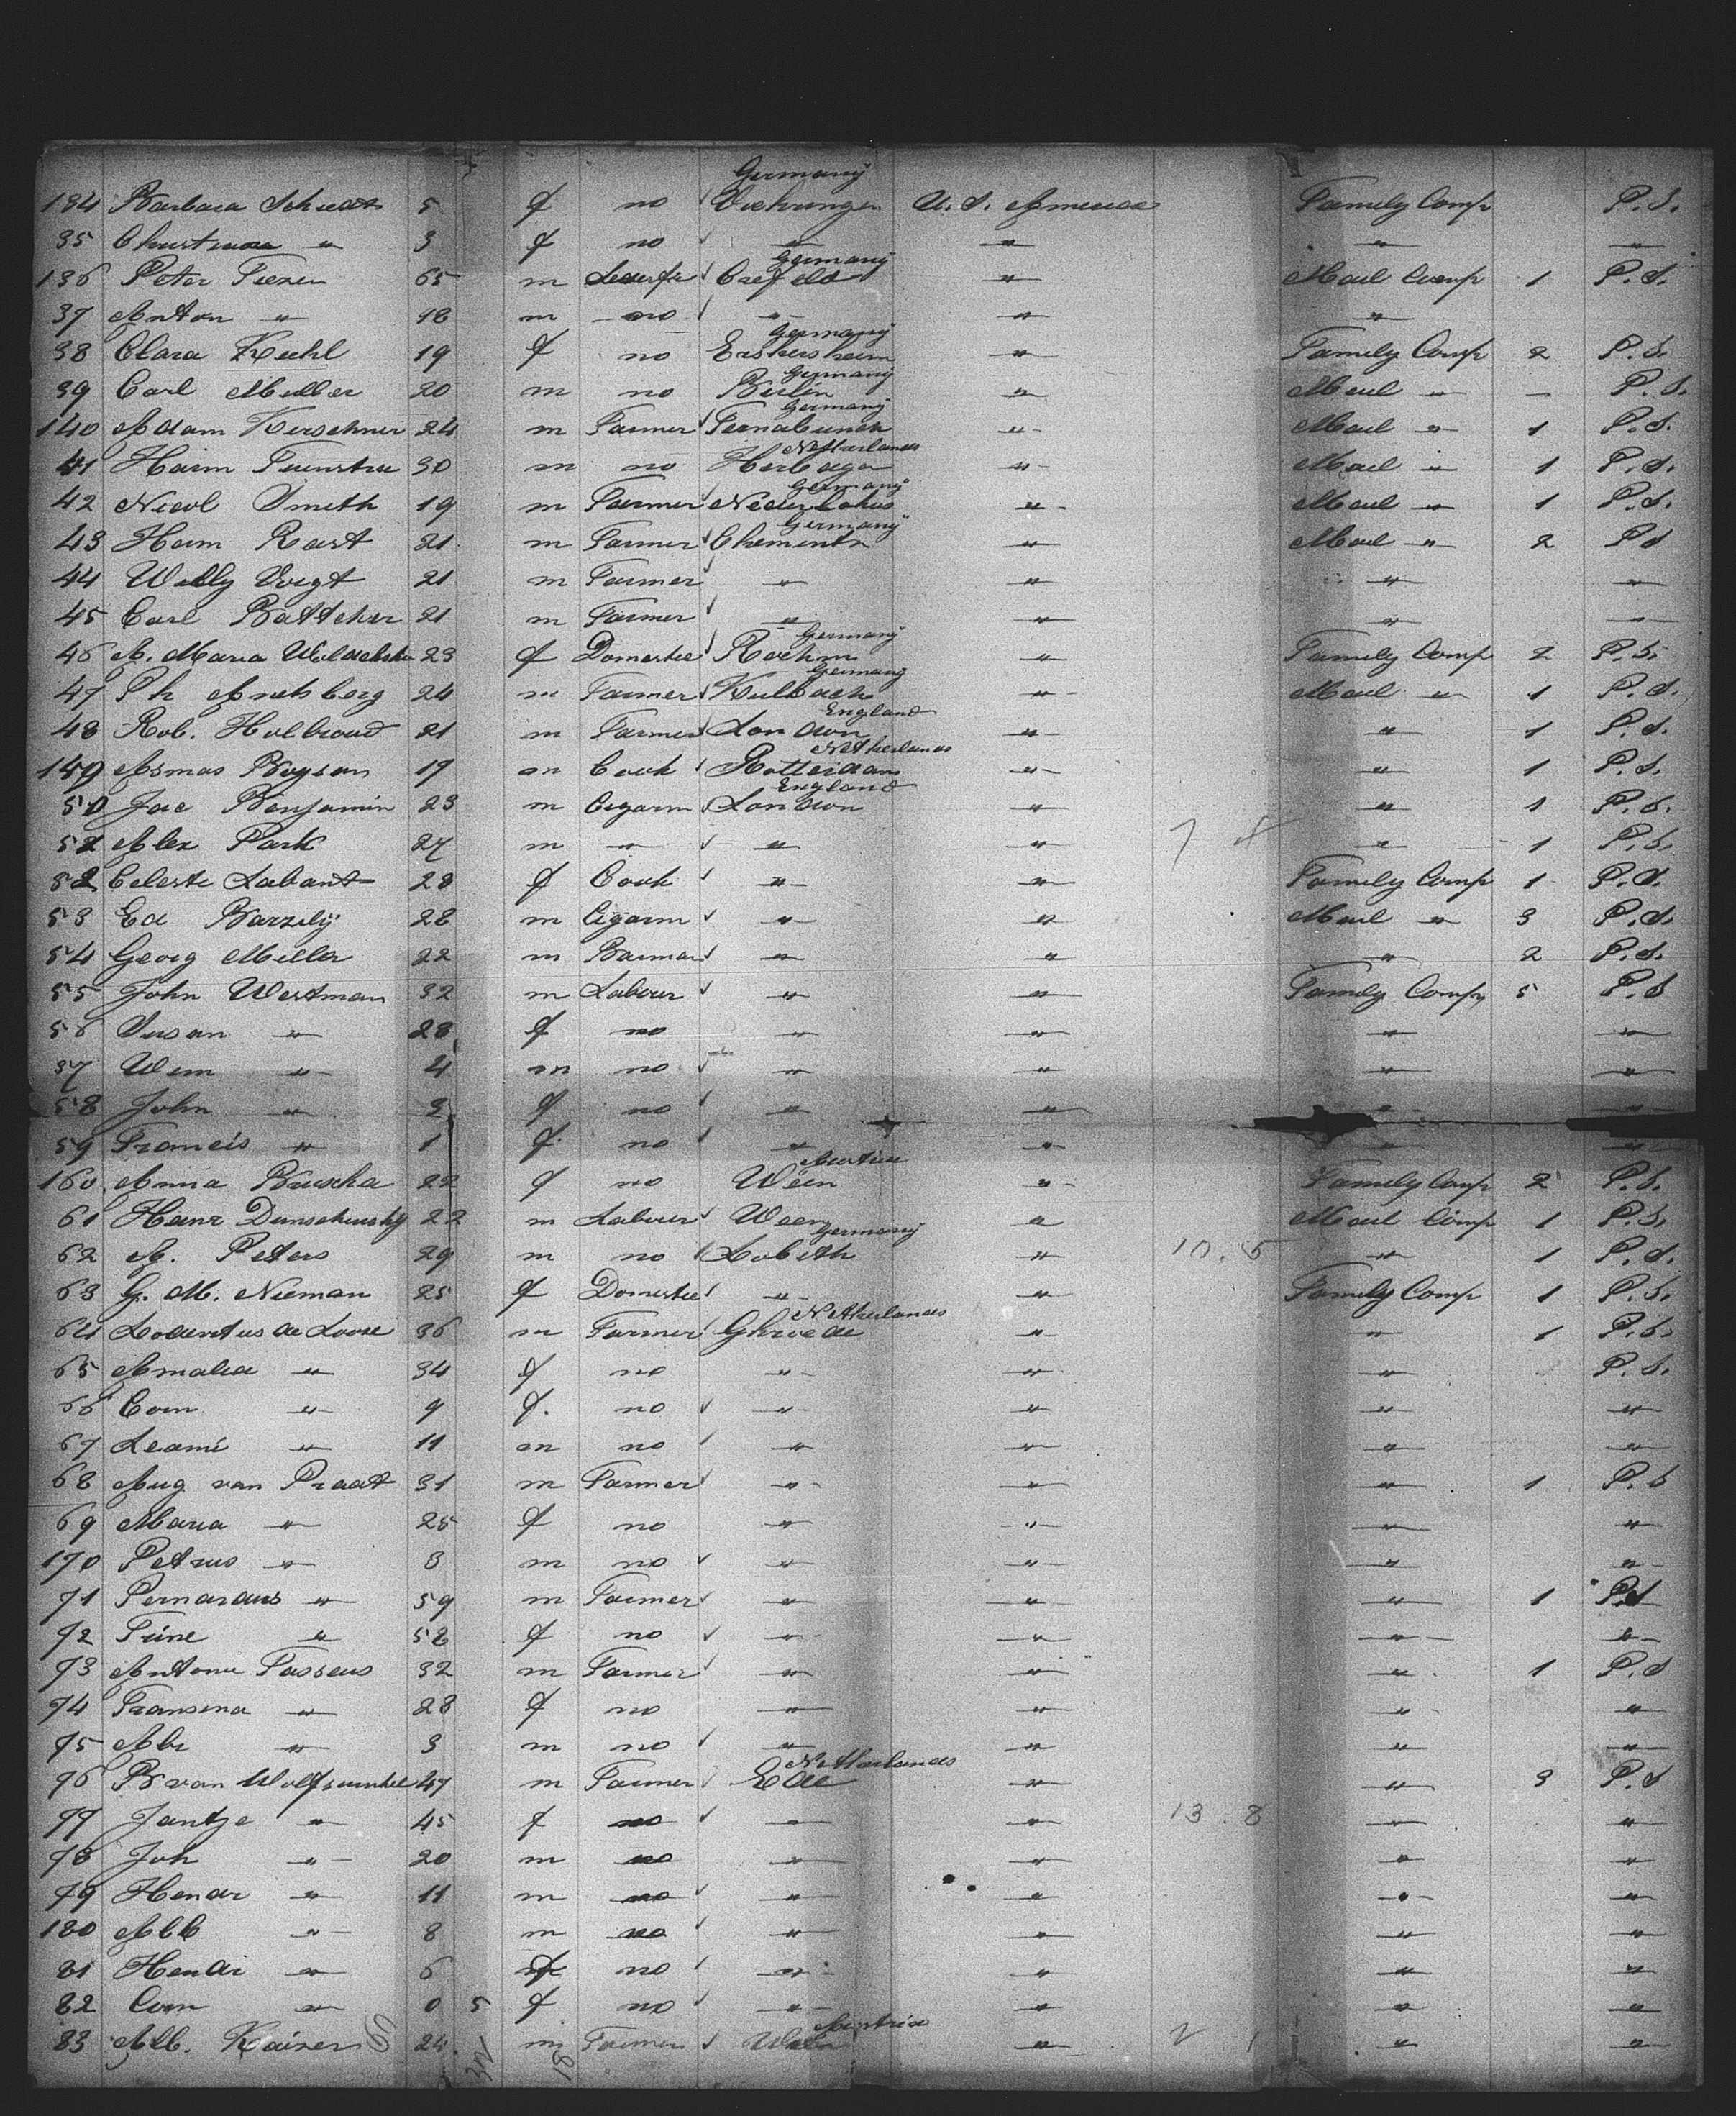 Germany
134 Barbara 5 f no U. S. America Family Comp P. S.
35 " 3 f no " " " "
Germany
136 Peter 65 m Crefeld " Mail Comp 1 P. S.
37 Anton " 18 m no " " "
Germany
38 Clara Kuhl 19 f no " Family Comp 2 P. S.
Germany
39 Carl Muller 20 m no Berlin " Mail " - P. S.
Germany
140 Adam Kerschner 24 m Farmer " Mail " 1 P. S.
Netherlands
41 Harm 30 m no " Mail " 1 P. S.
Germany
42 Nicol Smith 19 m Farmer " Mail " 1 P. S.
Germany
43 Herm Rast 21 m Farmer Chemnitz " Mail " 2 P S
44 Willy Voigt 21 m Farmer " " " "
45 Carl Battcher 21 m Farmer " " " "
Germany
46 A. Maria 23 f Domestic " Family Comp 2 P. S.
Germany
47 Ph 24 m Farmer Kulbach " Mail " 1 P. S.
England
48 Rob. Holbrood 21 m Farmer London " " 1 P. S.
Netherlands
149 Asmas Boysan 19 m Cook Rotterdam " " 1 P. S.
England
50 Jac Benjamin 23 m Cigarm London " " 1 P. S.
51 Alex Park 27 m " " " 7 " 1 P. S.
52 Celeste Labant 28 f Cook " " Family Comp 1 P. S.
53 Ed Barzily 28 m Cigarm " " Mail " 3 P. S.
54 Georg Miller 22 m Barman " " " 2 P. S.
55 John Westman 32 m Labour " " Family Comp 5 P. S
56 Susan " 28 f no " " " "
57 Wem " 4 m no " " " "
58 John " 3 f no " " " "
59 Francis " 1 f no " " " "
Austria
160 Anna Bruscha 22 f no Wien " Family Comp 2 P. S.
61 Heinr 22 m Labour Wien " Mail Comp 1 P. S.
Germany
62 A. Peters 29 m no Lobith " 10. 5 " 1 P. S.
63 G. M. Nieman 25 f Domestic " " Family Comp 1 P. S.
Netherlands
64 de Loose 36 m Farmer " " 1 P. S.
65 Amalia " 34 f no " " " P. S.
66 Corn " 9 f. no " " " "
67 " 11 m no " " " "
68 Aug van Praat 31 m Farmer " " " 1 P. S
69 Maria " 25 f no " " " "
170 Petrus " 3 m no " " " "
71 " 59 m Farmer " " " 1 P. S
72 Trine " 58 f no " " " "
73 Antonie 32 m Farmer " " " 1 P. S
74 Fransina " 28 f no " " " "
75 Abr " 3 m no " " " "
Netherlands
76 B van 47 m Farmer Ede " " 3 P. S
77 Jantje " 45 f no " " 13. 8 " "
78 Joh " 20 m no " " " "
79 Hendr " 11 m no " " " "
180 Alb " 8 m no " " " "
81 Hendr " 6 f no " " " "
82 Corn " 0 5 f no " " " "
Austria
83 Alb. Kaiser 24 m Farmer Wien " 2 1 " "